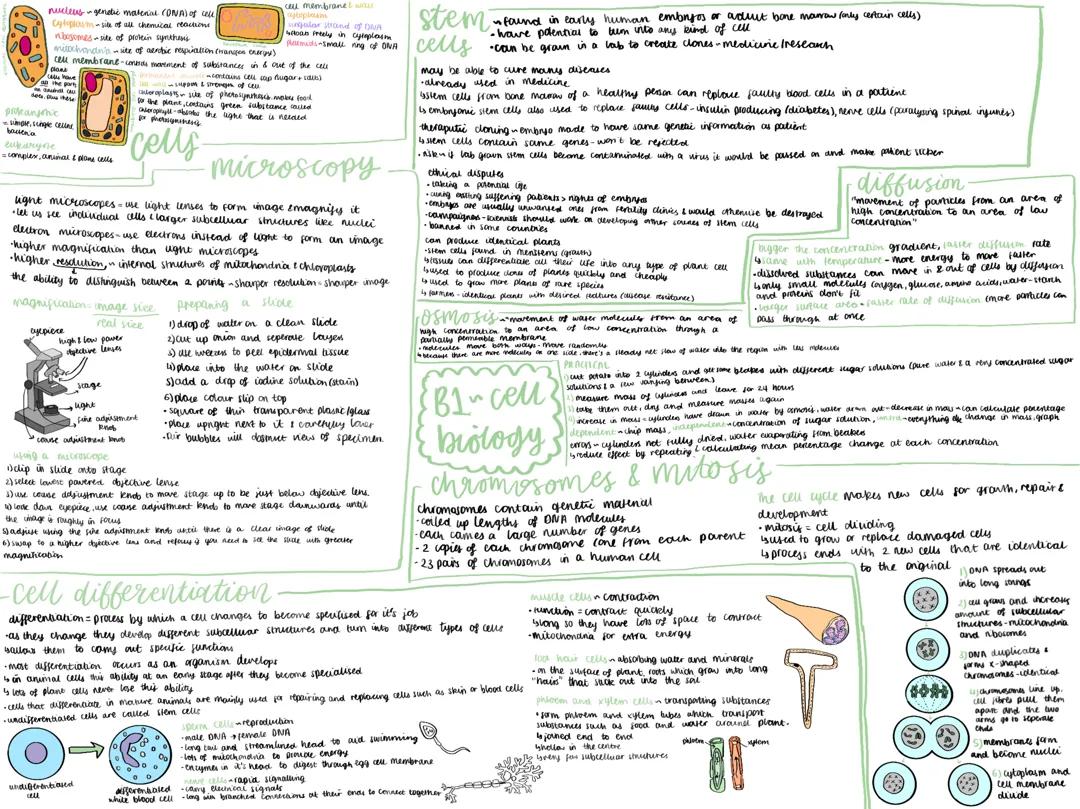 nucleus ~ genetic material (DNA) of cell
cytoplasm ~ site of all chemical reactions
ribosomes ~ site of protein synthesis
mitochondria ~ site of aerobic respiration (transfers energy)
cell membrane - controls movement of substances in & out of the cell
plant cells have all the parts an animal cell does, plus these
permanent vacuole ~ contains cell sap (sugar + salts)
cell wall ~ support & strength of cell
chloroplasts ~ site of photosynthesis, makes food
for the plant, contains green substance called
chlorophyll - absorbs the light that is needed
for photosynthesis.
cell membrane & wall
cytoplasm
singular strand of DNA
↳ floats freely in cytoplasm
plasmids - small ring of DNA
prokaryotic
= simple, single cells,
bacteria
eukaryotic
= complex, animal & plant cells
cells
microscopy
light microscopes = use light lenses to form image & magnify it
• let us see individual cells & larger subcellular structures like nuclei
electron microscopes - use electrons instead of light to form an image
• higher magnification than light microscopes
• higher resolution, ~ internal structures of mitochondria & chloroplasts
the ability to distinguish between 2 points ~ sharper resolution = sharper image
magnification = image size
real size
eyepiece
high & low power
objective lenses
stage
light
fine adjustment
knob
coarse adjustment knob
preparing a slide
1) drop of water on a clean slide
2) cut up onion and seperate layers
3) use tweezers to peel epidermal tissue
4) place into the water on slide
5) add a drop of iodine solution (stain)
6) place colour slip on top
• square of thin transparent plastic/glass
• place upright next to it & carefully lower
• air bubbles will obstruct view of specimen
using a microscope
1) clip in slide onto stage
2) select lowest powered objective lense
3) use coarse addjustment knob to move stage up to be just below objective lens.
4) look down eyepiece, use coarse adjustment knob to move stage downwards until
the image is roughly in focus
5) adjust using the fine adjustment knob until there is a clear image of slide
6) swap to a higher objective lens and refocus if you need to see the slide with greater
magnification
stem cells
~ found in early human embryos or adult bone marrow (only certain cells)
• have potential to turn into any kind of cell
• can be grown in a lab to create clones - medicine/research
may be able to cure many diseases
• already used in medicine
↳ stem cells from bone marrow of a healthy person can replace faulty blood cells in a patient
↳ embryonic stem cells also used to replace faulty cells - insulin producing (diabetes), nerve cells (paralysing spinal injuries)
theraputic cloning ~ embryo made to have same genetic information as patient
↳ stem cells contain same genes - won't be rejected
• risk ~ if lab grown stem cells become contaminated with a virus it would be passed on and make patient sicker
ethical disputes
• taking a potential life
• curing existing suffering patients > rights of embryos
• embryos are usually unwanted ones from fertility clinics & would otherwise be destroyed
• campaigners - scientists should work on developing other sources of stem cells
• banned in some countries
can produce identical plants
• stem cells found in meristems (growth)
↳ tissues can differentiate all their life into any type of plant cell
↳ used to produce clones of plants quickly and cheaply
↳ used to grow more plants of rare species
↳ farmers - identical plants with desired features (disease resistance)
diffusion
"movement of particles from an area of
high concentration to an area of low
concentration"
bigger the concentration gradient, faster diffusion rate
↳ same with temperature - more energy to move faster
• dissolved substances can move in & out of cells by diffusion
↳ only small molecules (oxygen, glucose, amino acids, water - starch
and proteins don't fit
• larger surface area = faster rate of diffusion (more particles can
pass through at once
osmosis ~ movement of water molecules from an area of
high concentration to an area of low concentration through a
partially permeable membrane
• molecules move both ways - move randomly
↳ because there are more molecules on one side, there's a steady net flow of water into the region with less molecules
PRACTICAL
1) cut potato into 2 cylinders and get some beakers with different sugar solutions (pure water & a very concentrated sugar
solutions & a few varying between)
2) measure mass of cylinders and leave for 24 hours
3) take them out, dry and measure masses again
4) increase in mass - cylinders have drawn in water by osmosis, water drawn out - decrease in mass ~ can calculate percentage
dependent ~ chip mass, independent ~ concentration of sugar solution, control ~ everything else change in mass, graph
errors ~ cylinders not fully dried, water evaporating from beakers
↳ reduce effect by repeating & calculating mean percentage change at each concentration
B1 ~ cell
biology
chromosomes & mitosis
chromosomes contain genetic material
• coiled up lengths of DNA molecules
• each carries a large number of genes
- 2 copies of each chromosome (one from each parent
- 23 pairs of chromosomes in a human cell
the cell cycle makes new cells for growth, repair &
development
• mitosis = cell dividing
↳ used to grow or replace damaged cells
↳ process ends with 2 new cells that are identical
to the original
1) DNA spreads out
into long strings
2) cell grows and increases
amount of subcellular
structures - mitochondria
and ribosomes
3) DNA duplicates &
forms x-shaped
chromosomes - identical
4) chromosomes line up,
cell fibres pull them
apart and the two
arms go to seperate
ends
5) membranes form
and become nuclei
6) cytoplasm and
cell membrane
divide
cell differentiation
differentiation = process by which a cell changes to become specilised for it's job
• as they change they develop different subcellular structures and turn into different types of cells
↳ allows them to carry out specific functions
• most differentiation occurs as an organism develops
↳ in animal cells this ability at an early stage after they become specialised
↳ lots of plant cells never lose this ability
• cells that differentiate in mature animals are mainly used for repairing and replacing cells such as skin or blood cells
• undifferentiated cells are called stem cells
undifferentiated
cell
differentiated
white blood cell
sperm cells ~ reproduction
• male DNA → female DNA
• long tail and streamlined head to aid swimming
• lots of mitochondria to provide energy
• enzymes in it's head to digest through egg cell membrane
nerve cells ~ rapid signalling
• carry electrical signals
• long with branched connections at their ends to connect together
muscle cells ~ contraction
• function = contract quickly
↳ long so they have lots of space to contract
• mitochondria for extra energy
root hair cells ~ absorbing water and minerals
• on the surface of plant, roots which grow into long
"hairs" that stick out into the soil
phloem and xylem cells ~ transporting substances
• form phloem and xylem tubes which transport
substances such as food and water around plant.
↳ joined end to end
↳ hollow in the centre
↳ very few subcellular structures
phloem
xylem